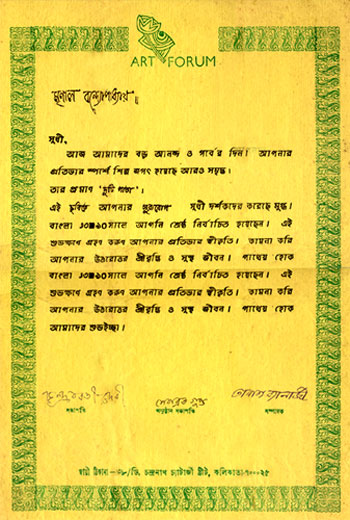 ART FORUM
মৃণাল বন্দ্যোপাধ্যায় ॥
সুধী,
আজ আমাদের বড় আনন্দ ও গর্বের দিন। আপনার
প্রতিভার স্পর্শে শিল্প জগৎ হয়েছে আরও সমৃদ্ধ।
তার প্রমাণ 'দুটি পাতা'।
এই ছবিতে আপনার সুরারোপ সুধী দর্শকদের করেছে মুগ্ধ।
বাংলা ১৩৯০সালে আপনি শ্রেষ্ঠ নির্বাচিত হয়েছেন। এই
শুভক্ষণে গ্রহণ করুণ আপনার প্রতিভার স্বীকৃতি। কামনা করি
আপনার উত্তরোত্তর শ্রীবৃদ্ধি ও সুস্থ জীবন। পাথেয় হোক
বাংলা ১৩৯০সালে আপনি শ্রেষ্ঠ নির্বাচিত হয়েছেন। এই
শুভক্ষণে গ্রহণ করুণ আপনার প্রতিভার স্বীকৃতি। কামনা করি
আপনার উত্তরোত্তর শ্রীবৃদ্ধি ও সুস্থ জীবন। পাথেয় হোক
আমাদের শুভইচ্ছা।
দেবব্রত গুপ্ত
সভাপতি অনুষ্ঠান সভাপতি সম্পাদক
স্থায়ী ঠিকানা চন্দ্রনাথ চ্যাটার্জী স্ট্রীট, কলিকাতা-৭০০০২৫